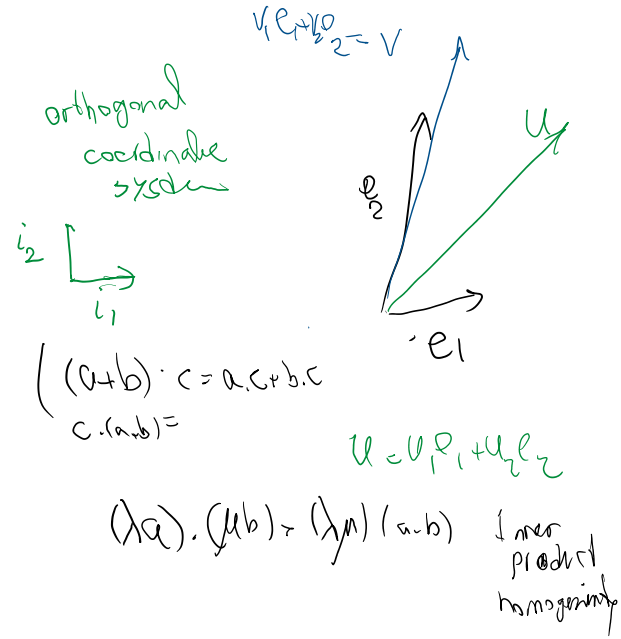 v₁e₁+v₂e₂ = v
orthogonal
coordinate
system
u
e₂
i₂
i₁
e₁
(a+b)·c = a.c+b.c
c.(a+b)=
u=u₁e₁+u₂e₂
(λa).(μb) = (λμ)(a.b)
Inner
product
homogeneity